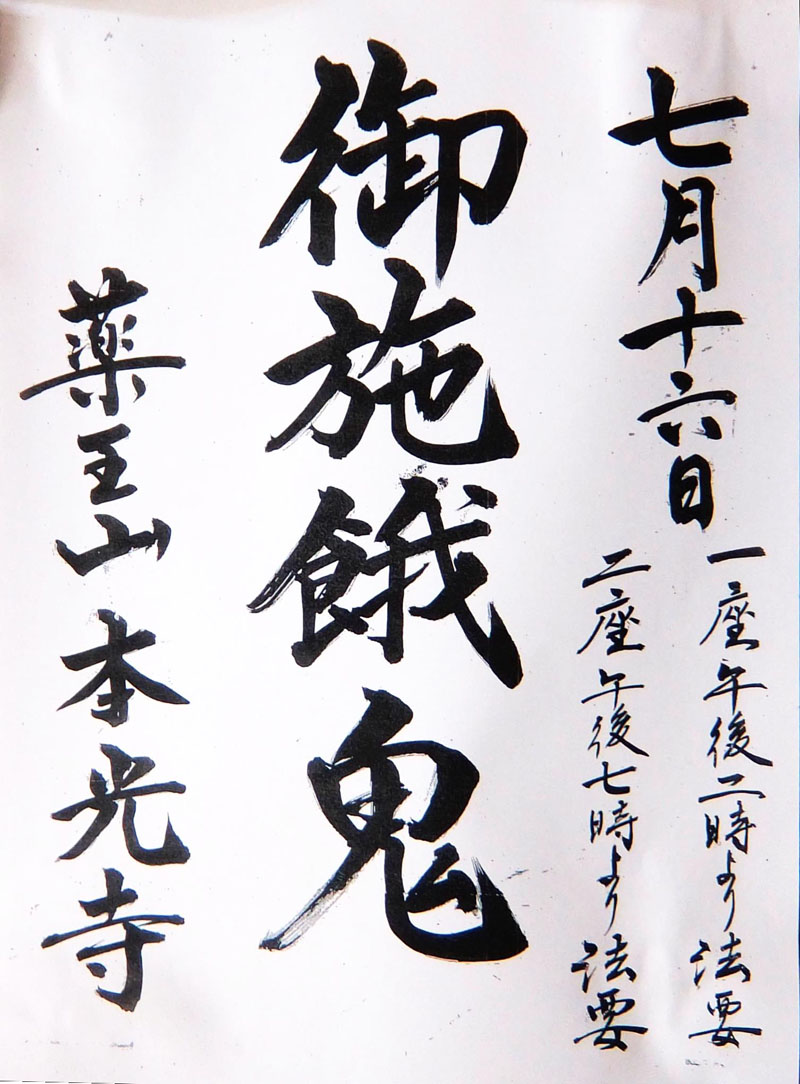 七月十六日
一座午後二時より法要
二座午後七時より法要
御施餓鬼
薬王山本光寺